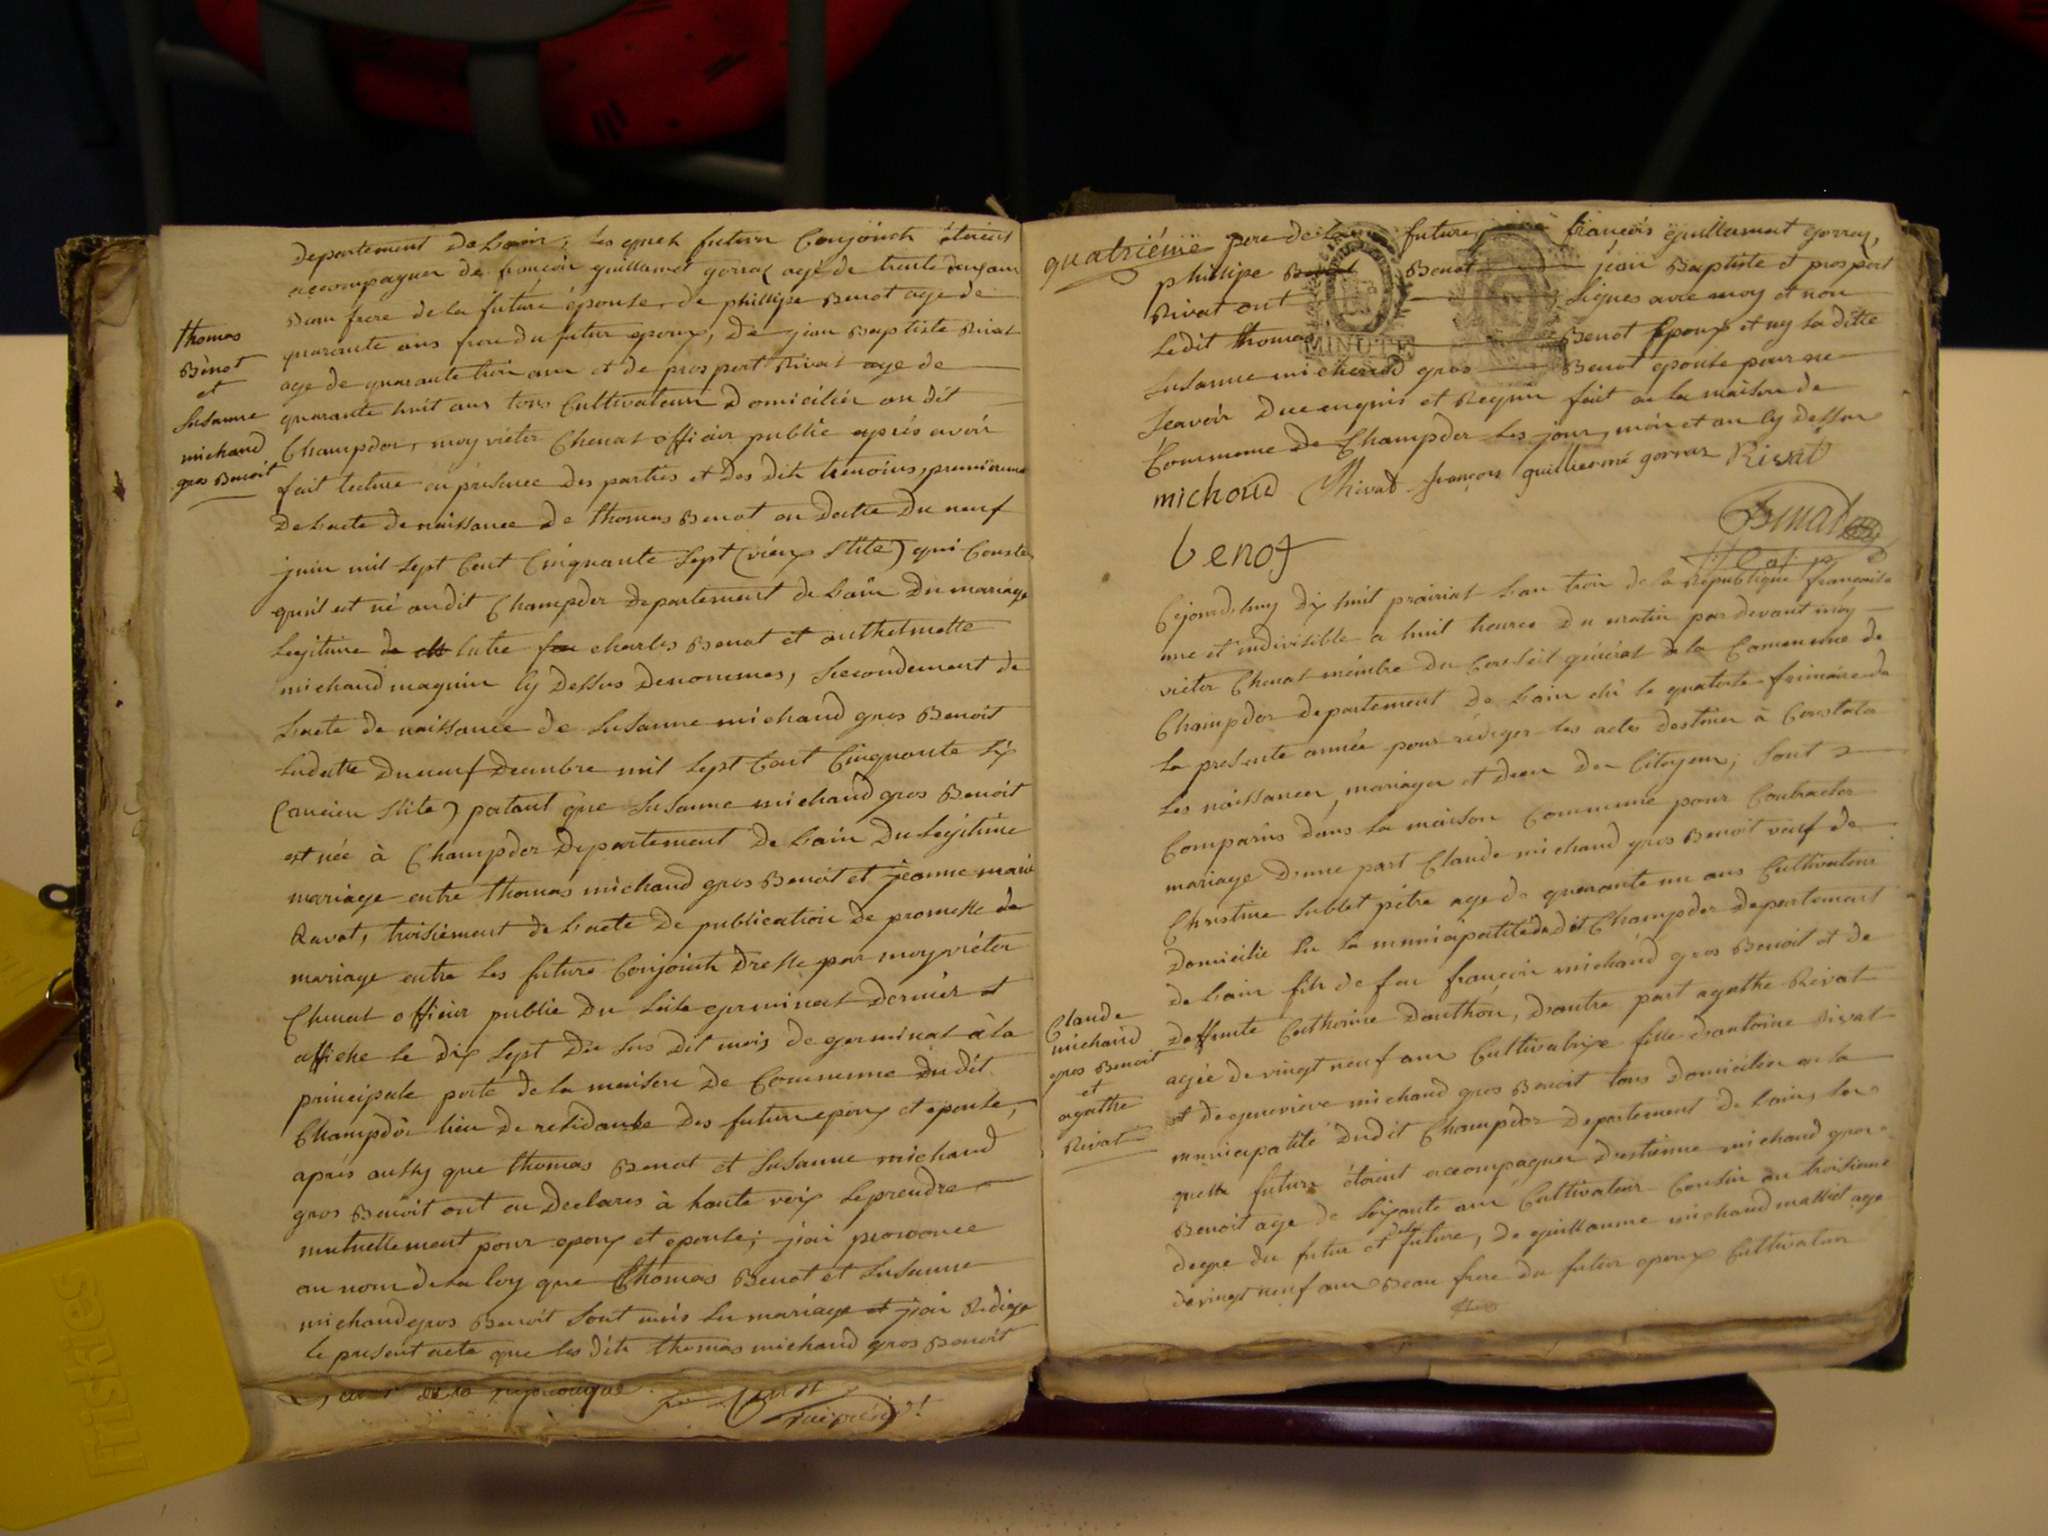 departement De L'ain, les quels futurs Conjoincts étoients
accompagner de françois guillamot gorraz agé de trente deux ans
Beau frere de la future épouse, de phillipe Benot age de
quarante ans frere du futur epoux, De jean Baptiste Rivat
age de quarante trois ans et de prospert Rivat age de
quarante huit ans tous Cultivateurs Domiciliés au dit
Champdor, moy victor Chenat officier public après avoir
fait lecture en présence Des parties et Des dits temoins, premierement
De L'acte de naissance De thomas Benot en Datte Du neuf
juin mil sept Cent Cinquante sept (vieux stile) qui Conste
qu'il est né audit Champdor Departement de L'ain Du mariage
Legitime entre charles Benot et anthelmette
michaud magnin Cy Dessus Denommes, secondement de
L'acte de naissance de Susanne michaud gros Benoit
Du neuf Decembre mil sept Cent Cinquante six
(ancien stile) portant que Susanne michaud gros Benoit
est née à Champdor Departement De L'ain Du Legitime
mariage entre thomas michaud gros Benoit et jeanne marie
Ravot, troisiement de L'acte De publication de promesse de
mariage entre les futurs Conjoints Dressé par moy victor
Chenat officier public Du seize germinal Dernier et
affiché le Dix sept Du sus Dit mois de germinal à la
principale porte de la maison De Commune Du dit
Champdor lieu De residance Des futurs epoux et epouse,
après aussy que thomas Benot et Susanne michaud
gros Benoit ont eu Declarés à haute voix se prendre
mutuellement pour epoux et epouse, j'ai prononcé
au nom de La loy que thomas Benot et Susanne
michaud gros Benoit sont unis en mariage et j'ai Redigé
le present acte que les dits thomas michaud gros Benoit
thomas
Benot
et
Susanne
michaud
gros Benoit
quatriéme pere de la future, françois guillaumot gorraz,
phillipe Benot jean Baptiste et prospert
Rivat ont signés avec moy et non
Ledit thomas Benot Epoux et ny La ditte
Susanne michaud gros Benot epouse pour ne
sçavoir De ce enquis et Requis fait en la maison de
Commune De Champdor les jour, mois et an Cy dessus
michoud Rivat françois guillaermé gorraz Rivat
benot
Cejourd'huy Dix huit prairial L'an trois de la Republique française
une et indivisible a huit heures Du matin par devant moy
victor Chenat membre Du Conseil général de la Commune de
Champdor departement De L'ain elü le quatorze frimaire de
La presente année pour rédiger les actes destinés à Constater
Les naissances, mariages et deces Des Citoyens; sont
Comparus dans La maison Commune pour Contracter
mariage D'une part Claude michaud gros Benoit veuf de
Christine sublet pitre age de quarante un ans Cultivateur
Domicilié sur la municipalité dudit Champdor departement
de L'ain fils de feu françois michaud gros Benoit et de
Deffunte Catherine Dauthon, D'autre part agathe Rivat
agée de vingt neuf ans Cultivatrixe fille d'antoine Rivat
et de genevieve michaud gros Benoit tous Domiciliés en la
municipalité Dudit Champdor Departement de L'ain, Les
quels futurs étoient accompagner D'estienne michaud gros
Benoit age de soixante ans Cultivateur Cousin au troisieme
degre du futur et de la future, De guillaume michaud massiot age
de vingt neuf ans Beau frere du futur epoux Cultivateur
Claude
michaud
gros Benoit
et
agathe
Rivat
MINUTE
Histoires